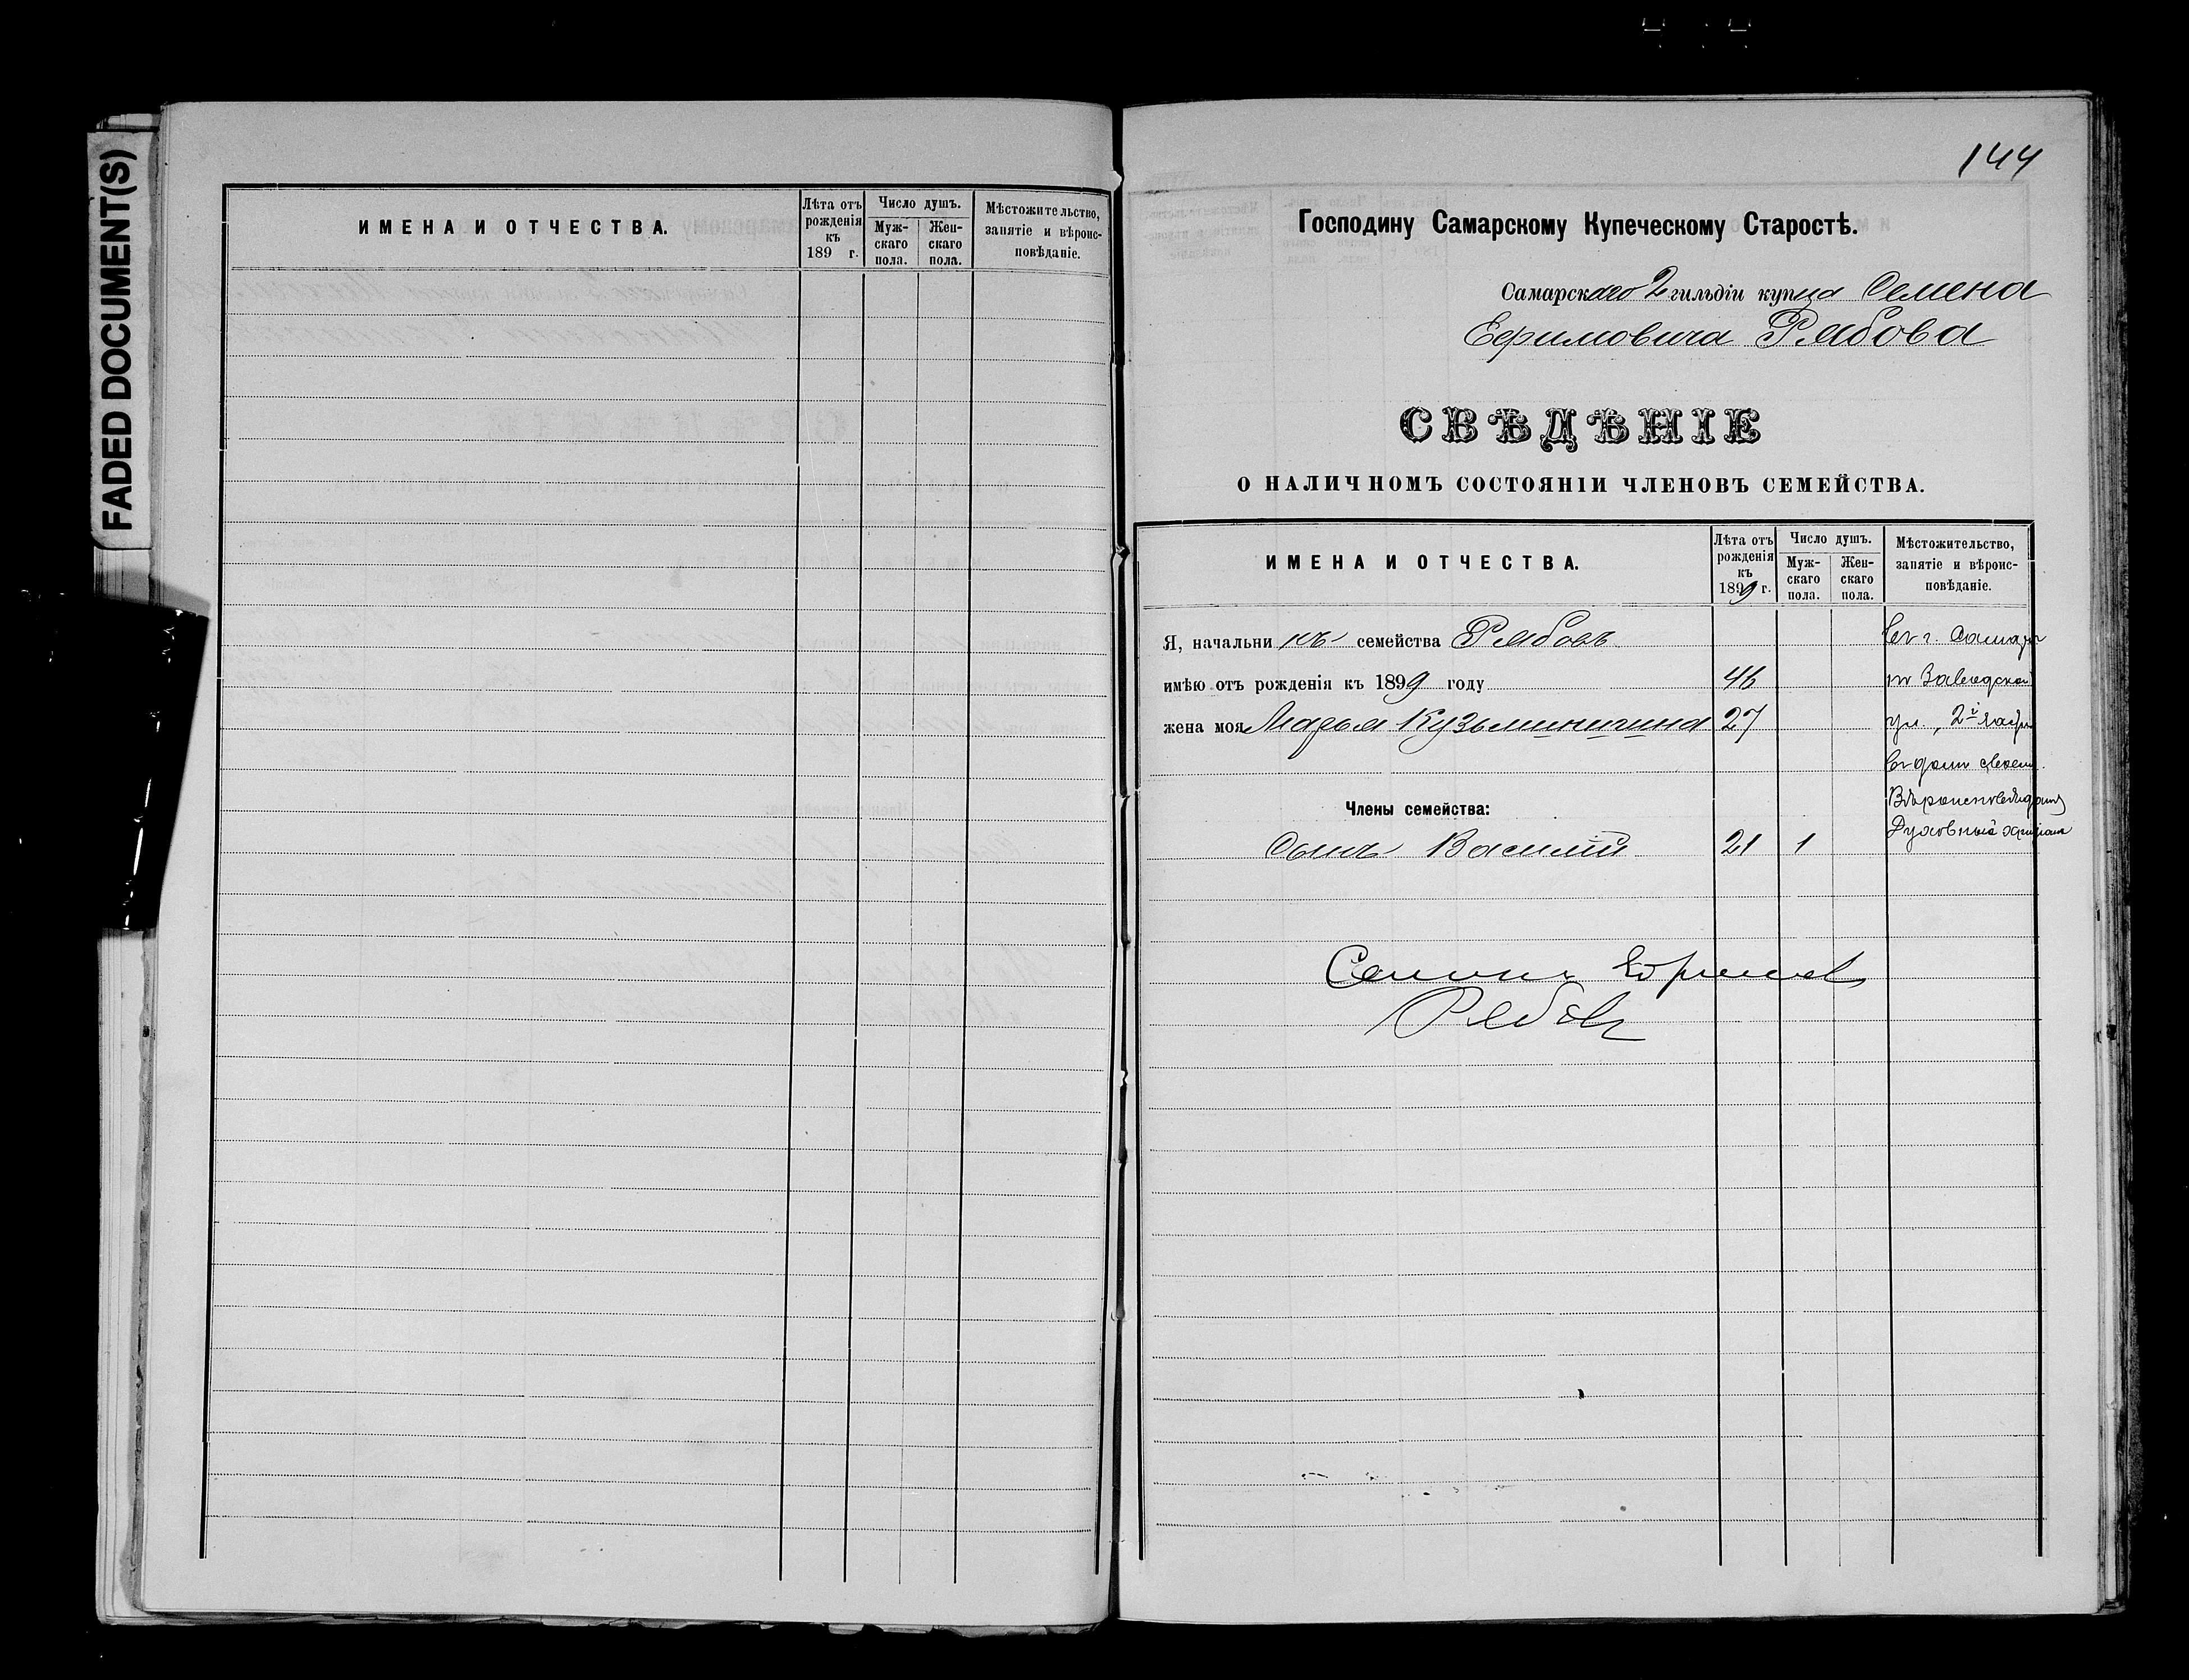 FADED DOCUMENT(S)
ИМЕНА И ОТЧЕСТВА.
Лѣта отъ рожденія къ 189 г.
Число душъ.
Муж-скаго пола.
Жен-скаго пола.
Мѣстожительство, занятіе и вѣроис-повѣданіе.
144
Господину Самарскому Купеческому Старостѣ.
Самарскаго 2 гильдіи купца Семена
Ефимовича Рябова
СВѢДѢНІЕ
О НАЛИЧНОМЪ СОСТОЯНІИ ЧЛЕНОВЪ СЕМЕЙСТВА.
ИМЕНА И ОТЧЕСТВА.
Лѣта отъ рожденія къ 1899 г.
Число душъ.
Муж-скаго пола.
Жен-скаго пола.
Мѣстожительство, занятіе и вѣроис-повѣданіе.
Я, начальникъ семейства Рябовъ Въ г. Самарѣ
имѣю отъ рожденія къ 1899 году 46 по Заводской
жена моя Марья Кузьминишна 27 ул., 2й части
въ домѣ своемъ.
Члены семейства:
Сынъ Василій 21 1
Семенъ Ефимов
Рябовъ